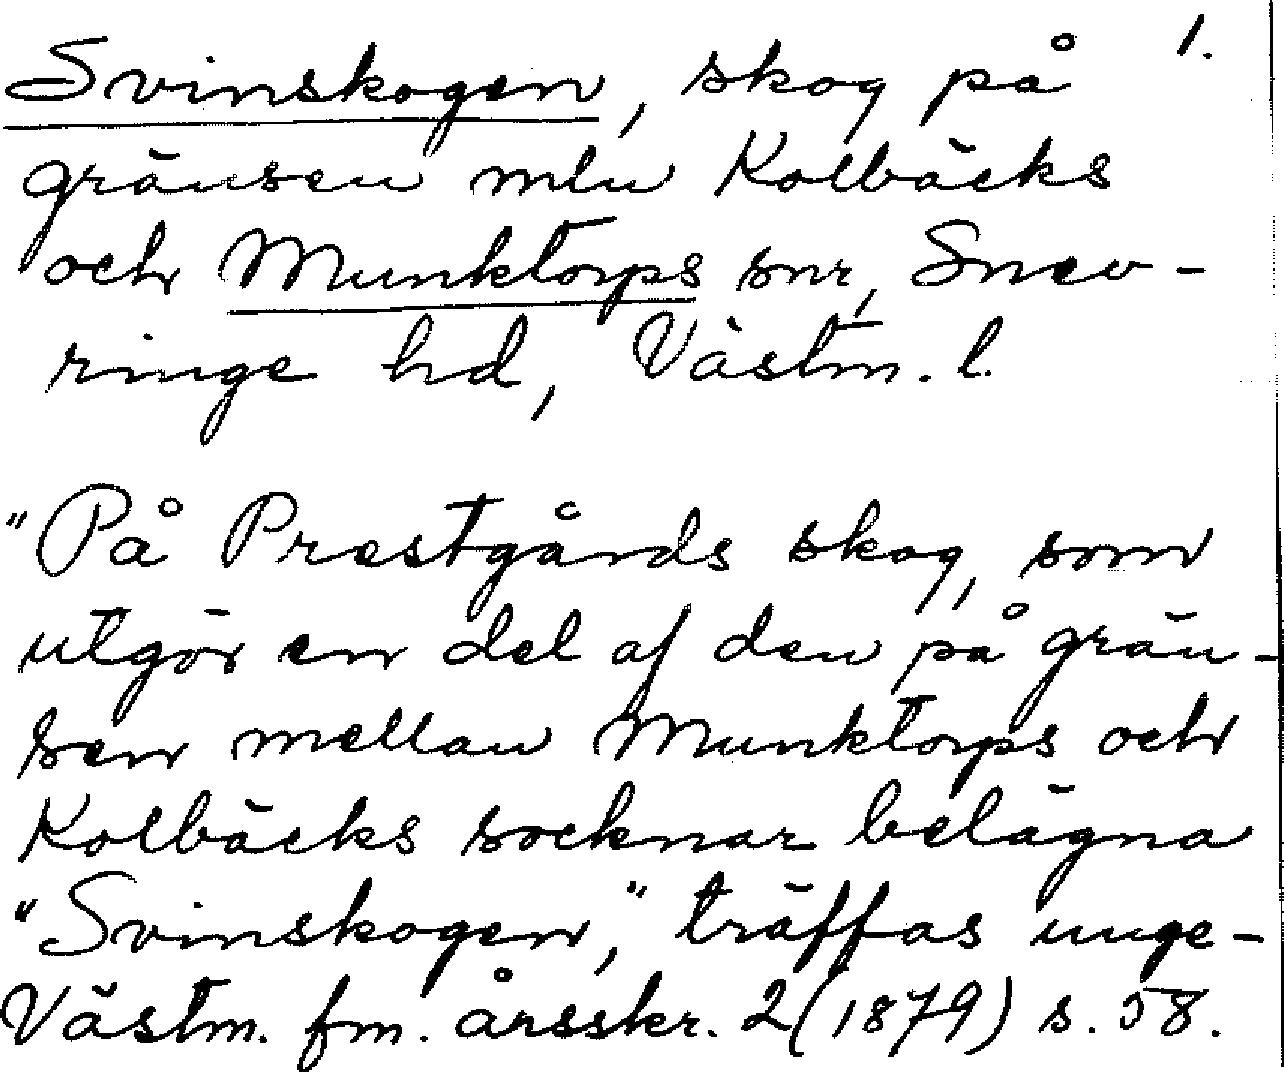 Svinskogen, skog på 1.
gränsen mln Kolbäcks
och Munktorps snr, Snev-
ringe hd, Västm. l.
"På Prestgårds skog, som
utgör en del af den på grän-
sen mellan Munktorps och
Kolbäcks socknar belägna
"Svinskogen," träffas unge-
Västm. fm. årsskr. 2 (1879) s. 58.